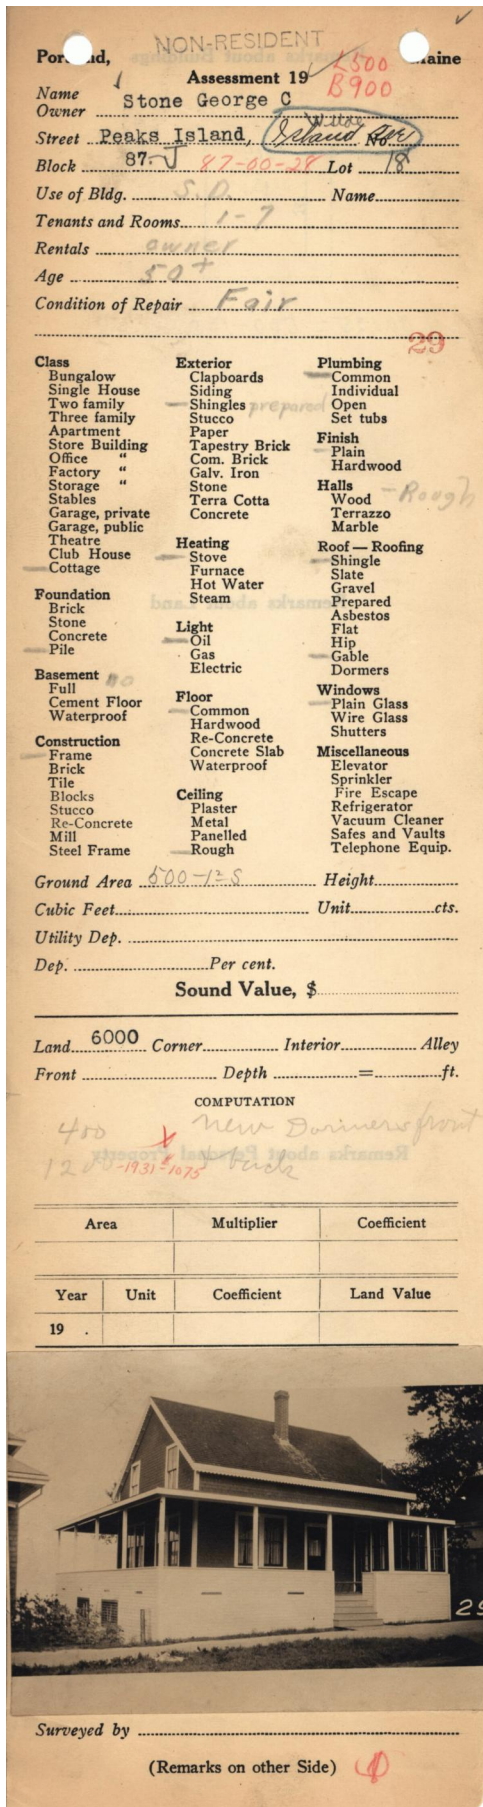 NON-RESIDENT
Portland, Maine
L500
Assessment 19
B900
Name
Owner Stone George C
Street Peaks Island, Island Ave No.
Block 87-J 87-00-28 Lot 18
Use of Bldg. S.D. Name
Tenants and Rooms 1-7
Rentals owner
Age 50+
Condition of Repair Fair
29
Class
Bungalow
Single House
Two family
Three family
Apartment
Store Building
Office "
Factory "
Storage "
Stables
Garage, private
Garage, public
Theatre
Club House
Cottage
Foundation
Brick
Stone
Concrete
Pile
Basement no
Full
Cement Floor
Waterproof
Construction
Frame
Brick
Tile
Blocks
Stucco
Re-Concrete
Mill
Steel Frame
Exterior
Clapboards
Siding
Shingles prepared
Stucco
Paper
Tapestry Brick
Com. Brick
Galv. Iron
Stone
Terra Cotta
Concrete
Heating
Stove
Furnace
Hot Water
Steam
Light
Oil
Gas
Electric
Floor
Common
Hardwood
Re-Concrete
Concrete Slab
Waterproof
Ceiling
Plaster
Metal
Panelled
Rough
Plumbing
Common
Individual
Open
Set tubs
Finish
Plain
Hardwood
Halls
Wood - Rough
Terrazzo
Marble
Roof — Roofing
Shingle
Slate
Gravel
Prepared
Asbestos
Flat
Hip
Gable
Dormers
Windows
Plain Glass
Wire Glass
Shutters
Miscellaneous
Elevator
Sprinkler
Fire Escape
Refrigerator
Vacuum Cleaner
Safes and Vaults
Telephone Equip.
Ground Area 500-1½ S Height
Cubic Feet Unit cts.
Utility Dep.
Dep. Per cent.
Sound Value, $
Land 6000 Corner Interior Alley
Front Depth = ft.
COMPUTATION
400 New Dormers front
1200 -1931-1075 & back
Area Multiplier Coefficient
Year Unit Coefficient Land Value
19 .
Surveyed by
(Remarks on other Side)